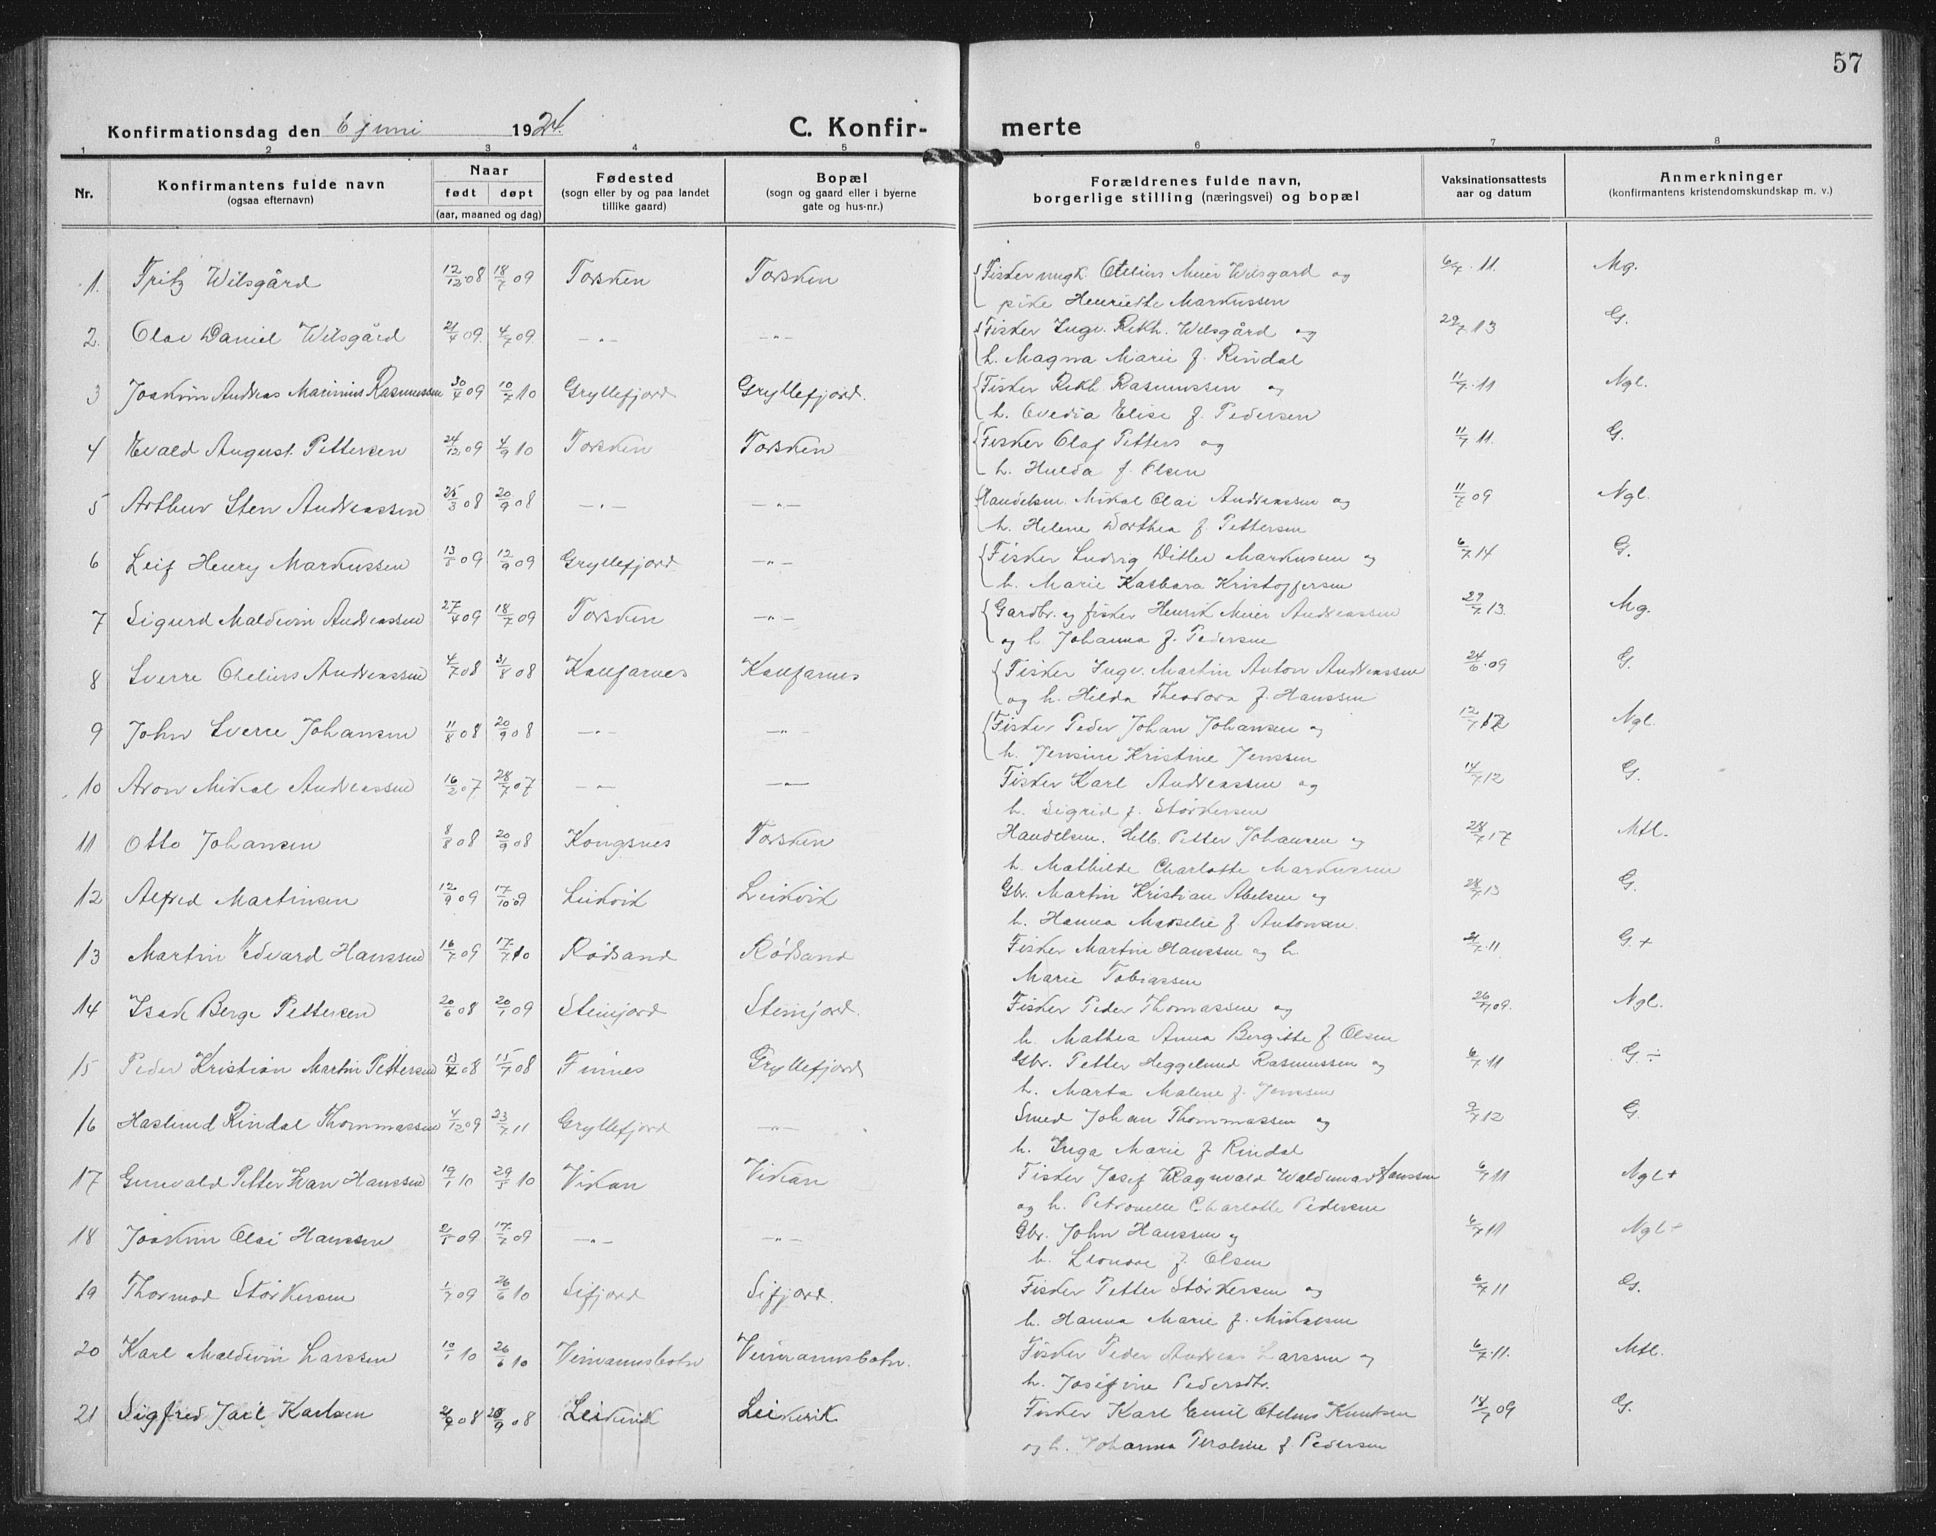 57
Konfirmationsdag den 6 juni 1924.
C. Konfirmerte
1 2 3 4 5 6 7 8
Nr. Konfirmantens fulde navn (ogsaa efternavn) Naar født døpt (aar, maaned og dag) Fødested (sogn eller by og paa landet tillike gaard) Bopæl (sogn og gaard eller i byerne gate og hus-nr.) Forældrenes fulde navn, borgerlige stilling (næringsvei) og bopæl Vaksinationsattests aar og datum Anmerkninger (konfirmantens kristendomskundskap m. v.)
1. Fritz Wilsgård 12/12 08 18/7 09 Torsken Torsken Fisker ungk. Otelius Meier Wilsgard og 6/7. 11. Mg.
pike Henriette Markussen
2. Olai Daniel Wilsgård 21/4 09. 4/7 09. —"— —"— Fisker Ingv. Rikh. Wilsgård og 29/7 13 G.
h. Magna Marie f. Rindal
3 Joakim Andreas Marinius Rasmussen 30/4 09 10/7 10 Gryllefjord Gryllefjord. Fisker Rikh. Rasmussen og 11/7. 11 Ngl.
h. Ovedia Elise f. Pedersen
4 Evald August Pettersen 24/12 09 4/9 10 Torsken Torsken Fisker Olaf Petters og 11/7 11. G.
h. Hulda f. Olsen
5 Arthur Sten Andreassen 25/3 08 20/9 08 —"— —"— Handelsm. Mikal Olai Andreassen og 11/7 09 Ngl.
h. Helene Dorthea f. Pettersen
6 Leif Henry Markussen 13/5 09 12/9 09 Gryllefjord —"— Fisker Ludvig Ditlev Markussen og 6/7 14 G.
h. Marie Kasbara Kristoffersen
7 Sigurd Maldevin Andreassen 27/4 09 18/7 09 Torsken —"— Gardbr. og fisker Henrik Meier Andreassen 29/7 13. Mg.
og h. Johanna f. Pedersen
8 Sverre Otelius Andreassen 4/7 08 31/8 08 Kaufarnes Kaufarnes Fisker Ingv. Martin Anton Andreassen 24/6. 09 G.
og h. Hilda Theodora f. Hanssen
9 John Sverre Johansen 11/8 08 20/9 08 —"— —"— Fisker Peder Johan Johansen og 12/7 12 Ngl.
h. Jensine Kristine Jenssen
10 Aron Mikal Andreassen 16/2 07 28/7 07 —"— —"— Fisker Karl Andreassen og 14/7 12 G.
h. Sigrid f. Størkersen
11 Otto Johansen 8/8 08 20/9 08 Kongsnes Torsken Handelsm. Hilb. Petter Johansen og 28/7 17 Mtl.
h. Mathilde Charlotte Markussen
12 Alfred Martinsen 12/9 09 17/10 09 Leikvik Leikvik Gbr. Martin Kristian Abelsen og 28/7 13 G.
h. Hanna Marselie f. Antonsen.
13 Martin Edvard Hanssen 16/7 09 17/7 10 Rødsand Rødsand Fisker Martin Hanssen og h. 21/7. 11. G. +
Marie Tobiassen
14 Isak Berge Pettersen 20/6 08 20/1 09 Steinfjord Steinfjord. Fisker Peder Thomassen og 26/7 09. Ngl.
h. Mathea Anna Bergitte f. Olsen
15 Peder Kristian Martin Pettersen 13/4 08 15/7 08 Finnes Gryllefjord Gbr. Petter Heggelund Rasmussen og 6/7. 11 G ÷
h. Marta Malene f. Jenssen
16 Haslund Rindal Thommassen 4/12 09 23/7 11 Gryllefjord —"— Smed Johan Thommassen og 9/7 12 G.
h. Inga Marie f. Rindal
17 Gunvald Petter Ivan Hanssen 19/1 10 29/5 10 Vikan Vikan Fisker Josef Ragnvald Waldemar Hanssen 6/7 11 Ngl +
og h. Petronelle Charlotte Pedersen
18 Joakim Olai Hanssen 2/1 09 17/7 09 —"— —"— Gbr. John Hanssen og 6/7 11 Ngl +
h. Leonore f. Olsen
19 Thormod Størkersen 1/7 09 26/6 10 Sifjord Sifjord. Fisker Petter Størkersen og 6/7 11 G.
h. Hanna Marie f. Mikalsen
20 Karl Maldevin Larssen 10/1 10 26/6 10 Veimannsbotn Veimannsbotn. Fisker Peder Andreas Larssen og 6/7. 11. Mtl.
h. Josefine Pedersdtr.
21 Sigfred Jarl Karlsen 2/9 08 28/9 08 Leikvik Leikvik Fisker Karl Emil Otelius Knutsen 18/7 09 G.
og h. Johanna Peroline f. Pedersen